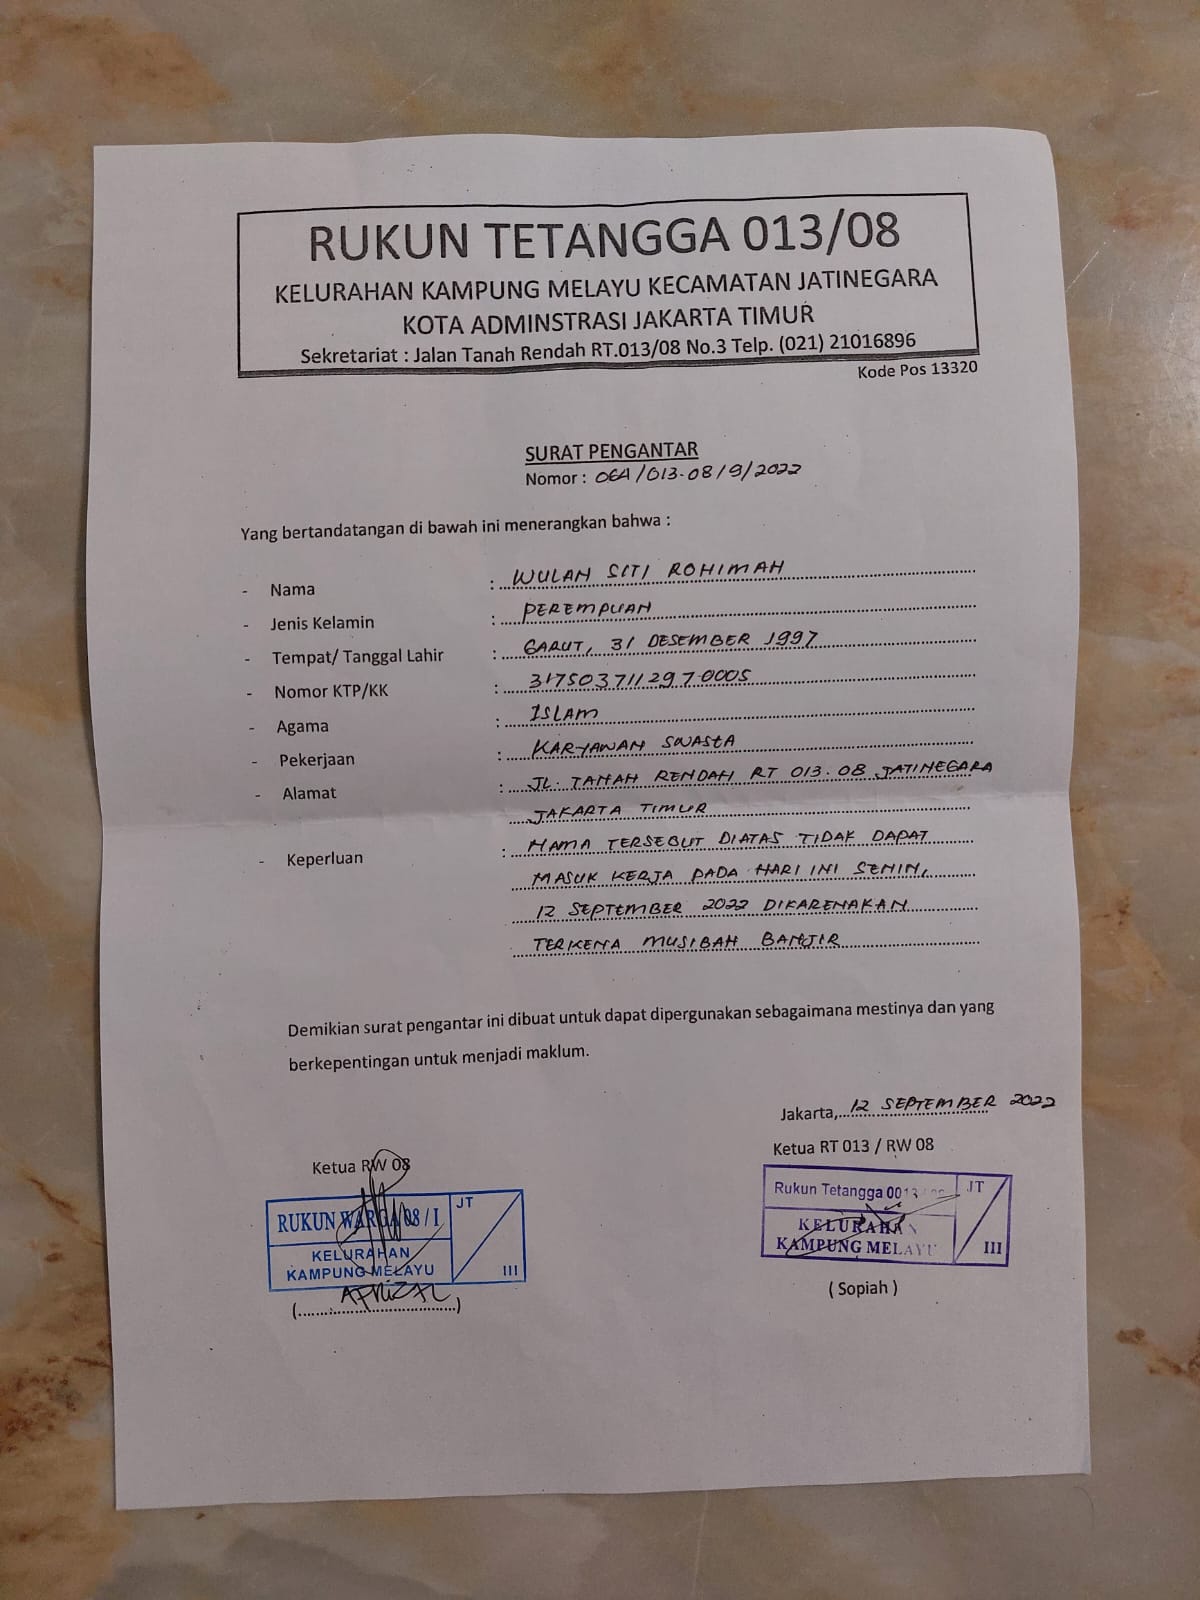 RUKUN TETANGGA 013/08
KELURAHAN KAMPUNG MELAYU KECAMATAN JATINEGARA
KOTA ADMINSTRASI JAKARTA TIMUR
Sekretariat : Jalan Tanah Rendah RT.013/08 No.3 Telp. (021) 21016896
Kode Pos 13320
SURAT PENGANTAR
Nomor : 064/013.08/9/2022
Yang bertandatangan di bawah ini menerangkan bahwa :
- Nama : WULAN SITI ROHIMAH
- Jenis Kelamin : PEREMPUAN
- Tempat/ Tanggal Lahir : GARUT, 31 DESEMBER 1997
- Nomor KTP/KK : 3175037112970005
- Agama : ISLAM
- Pekerjaan : KARYAWAN SWASTA
- Alamat : JL. TANAH RENDAH RT 013.08 JATINEGARA
JAKARTA TIMUR
- Keperluan : NAMA TERSEBUT DIATAS TIDAK DAPAT
MASUK KERJA PADA HARI INI SENIN,
12 SEPTEMBER 2022 DIKARENAKAN
TERKENA MUSIBAH BANJIR
Demikian surat pengantar ini dibuat untuk dapat dipergunakan sebagaimana mestinya dan yang
berkepentingan untuk menjadi maklum.
Jakarta, 12 SEPTEMBER 2022
Ketua RT 013 / RW 08
Ketua RW 08
RUKUN WARGA 08 / I
KELURAHAN
KAMPUNG MELAYU
JT
III
AFRIZAL
Rukun Tetangga 0013
KELURAHAN
KAMPUNG MELAYU
JT
III
( Sopiah )